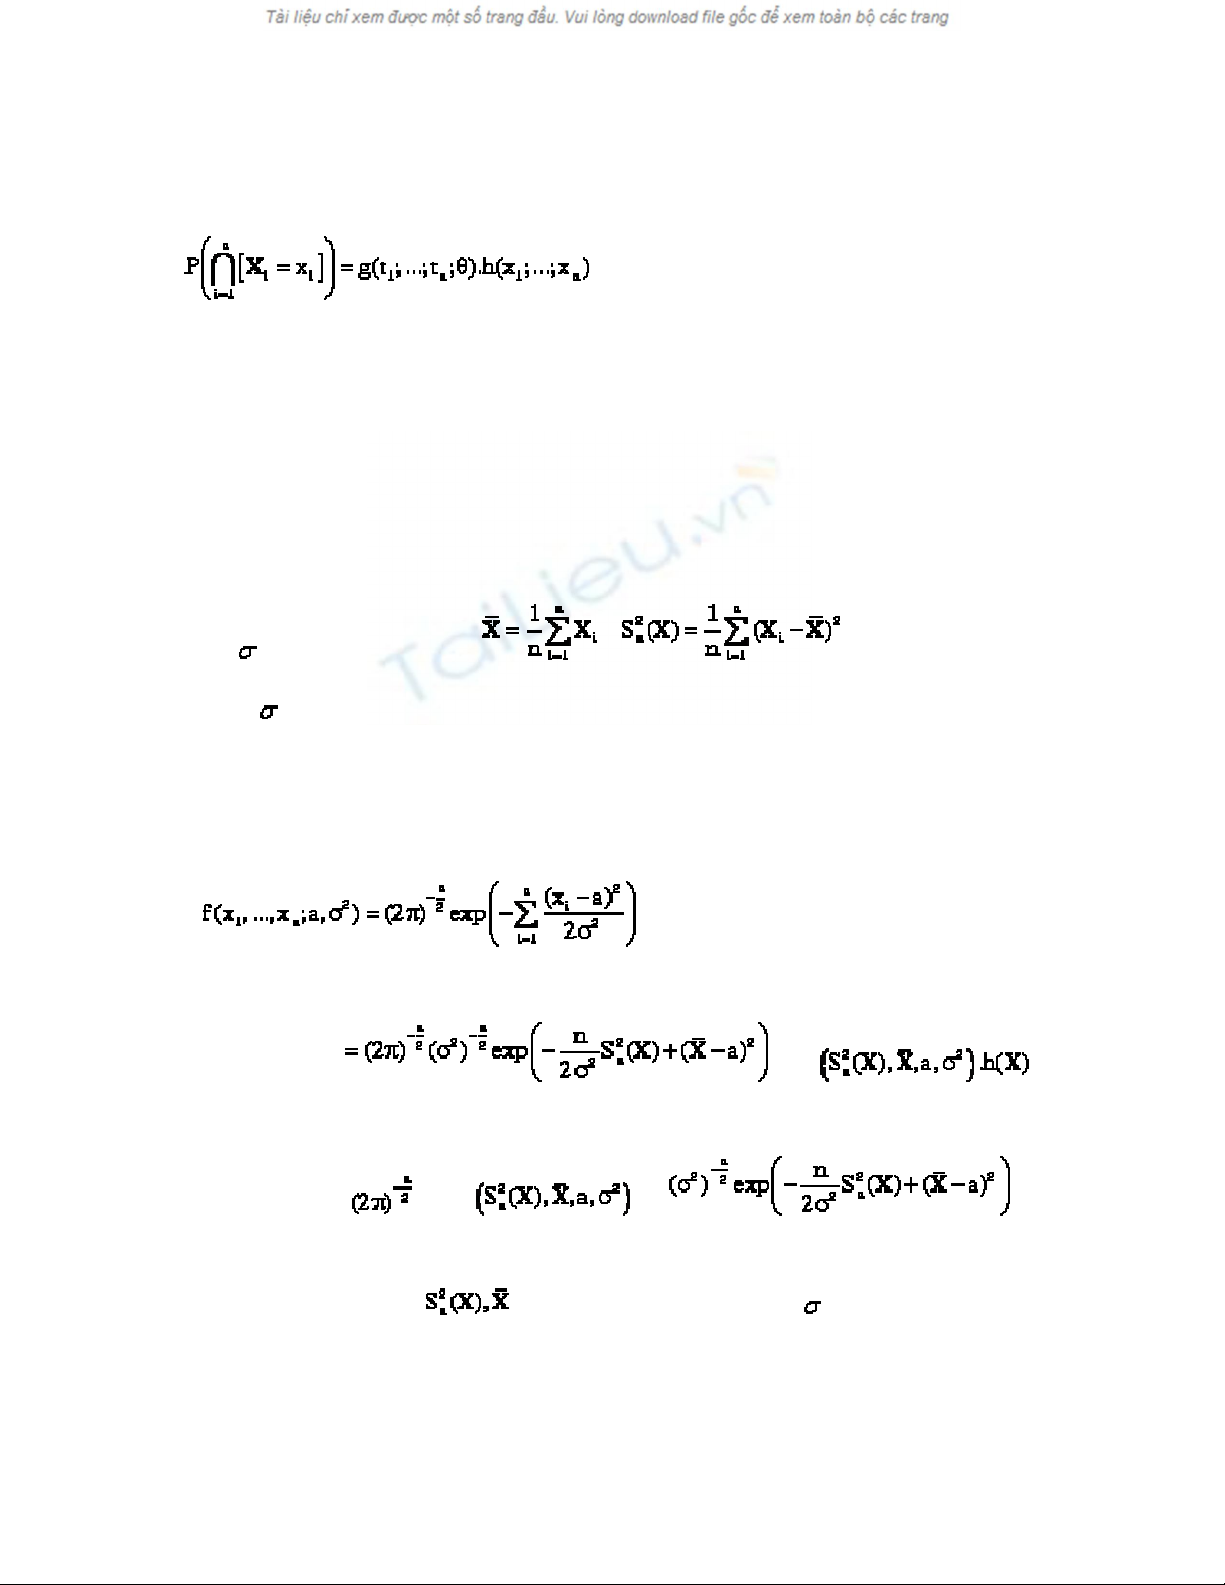 Tài liệu chỉ xem được một số trang đầu. Vui lòng download file gốc để xem toàn bộ các trang
P(⋂_{i=1}^{n}[X_i = x_i]) = g(t_1;...;t_n;θ).h(x_1;...;x_n)
TaiLieu.vn
X̄ = 1/n ∑_{i=1}^{n} X_i S_n^2(X) = 1/n ∑_{i=1}^{n} (X_i − X̄)^2
σ
σ
f(x_1,...,x_n;a,σ^2) = (2π)^{−n/2} exp(−∑_{i=1}^{n} (x_i − a)^2 / 2σ^2)
= (2π)^{−n/2} (σ^2)^{−n/2} exp(−n/2σ^2 S_n^2(X) + (X̄ − a)^2) (S_n^2(X), X̄, a, σ^2).h(X)
(2π)^{−n/2} (S_n^2(X), X̄, a, σ^2) (σ^2)^{−n/2} exp(−n/2σ^2 S_n^2(X) + (X̄ − a)^2)
S_n^2(X), X̄ σ